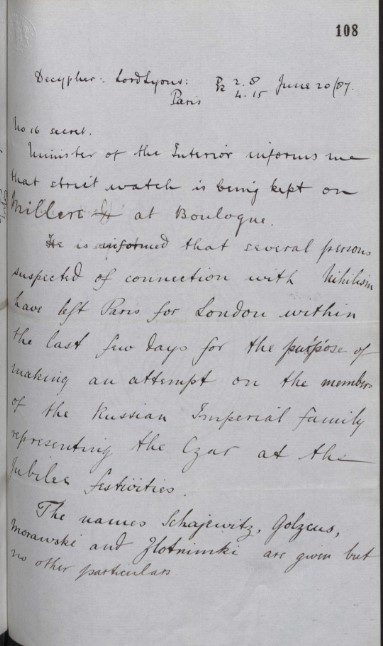 108
Decypher: Lord Lyons: 2. 8 June 20/87.
Paris 4. 15
No 16 secret.
Minister of the Interior informs me
that strict watch is being kept on
Millen at Boulogne.
He is informed that several persons
suspected of connection with Nihilism
have left Paris for London within
the last few days for the purpose of
making an attempt on the members
of the Russian Imperial family
representing the Czar at the
Jubilee festivities.
The names Schajewitz, Golzeus,
Morawski and Zlotnimki are given but
no other particulars